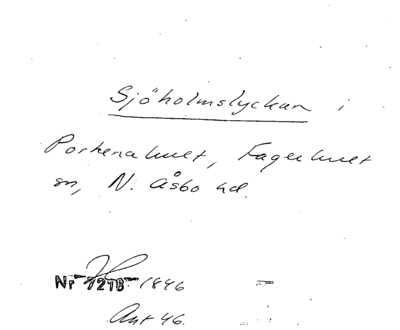 Sjöholmslyckan i
Porkenahult, Fagerhult
sn, N. Åsbo hd.
Nr 7278 1846
Ant 46.